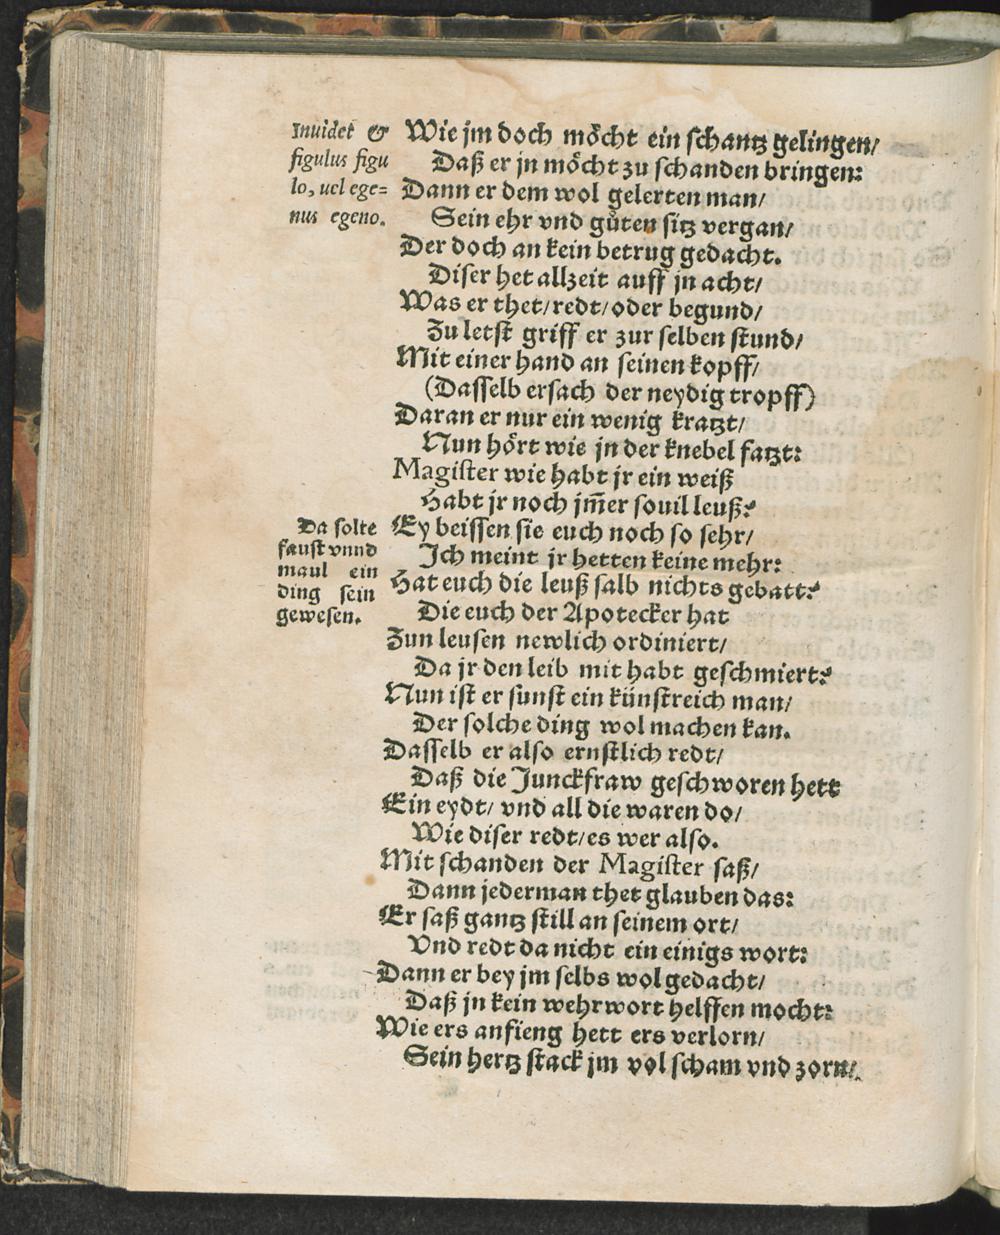 Inuidet &
figulus figu
lo, uel ege=
nus egeno.
Wie jm doch moͤcht ein schantz gelingen/
Daß er jn moͤcht zu schanden bringen:
Dann er dem wol gelerten man/
Sein ehr vnd guͤten sitz vergan/
Der doch an kein betrug gedacht.
Diser het allzeit auff jn acht/
Was er thet/ redt/ oder begund/
Zu letst griff er zur selben stund/
Mit einer hand an seinen kopff/
(Dasselb ersach der neydig tropff)
Daran er nur ein wenig kratzt/
Nun hoͤrt wie jn der knebel fatzt:
Magister wie habt jr ein weiß
Habt jr noch jm̃er souil leuß?
Da solte
faust vnnd
maul ein
ding sein
gewesen.
Ey beissen sie euch noch so sehr/
Ich meint jr hetten keine mehr:
Hat euch die leuß salb nichts gebatt?
Die euch der Apotecker hat
Zun leusen newlich ordiniert/
Da jr den leib mit habt geschmiert?
Nun ist er sunst ein künstreich man/
Der solche ding wol machen kan.
Dasselb er also ernstlich redt/
Daß die Junckfraw geschworen hett
Ein eydt/ vnd all die waren do/
Wie diser redt/ es wer also.
Mit schanden der Magister saß/
Dann jederman thet glauben das:
Er saß gantz still an seinem ort/
Vnd redt da nicht ein einigs wort:
Dann er bey jm selbs wol gedacht/
Daß jn kein wehrwort helffen mocht:
Wie ers anfieng hett ers verlorn/
Sein hertz stack jm vol scham vnd zorn/.